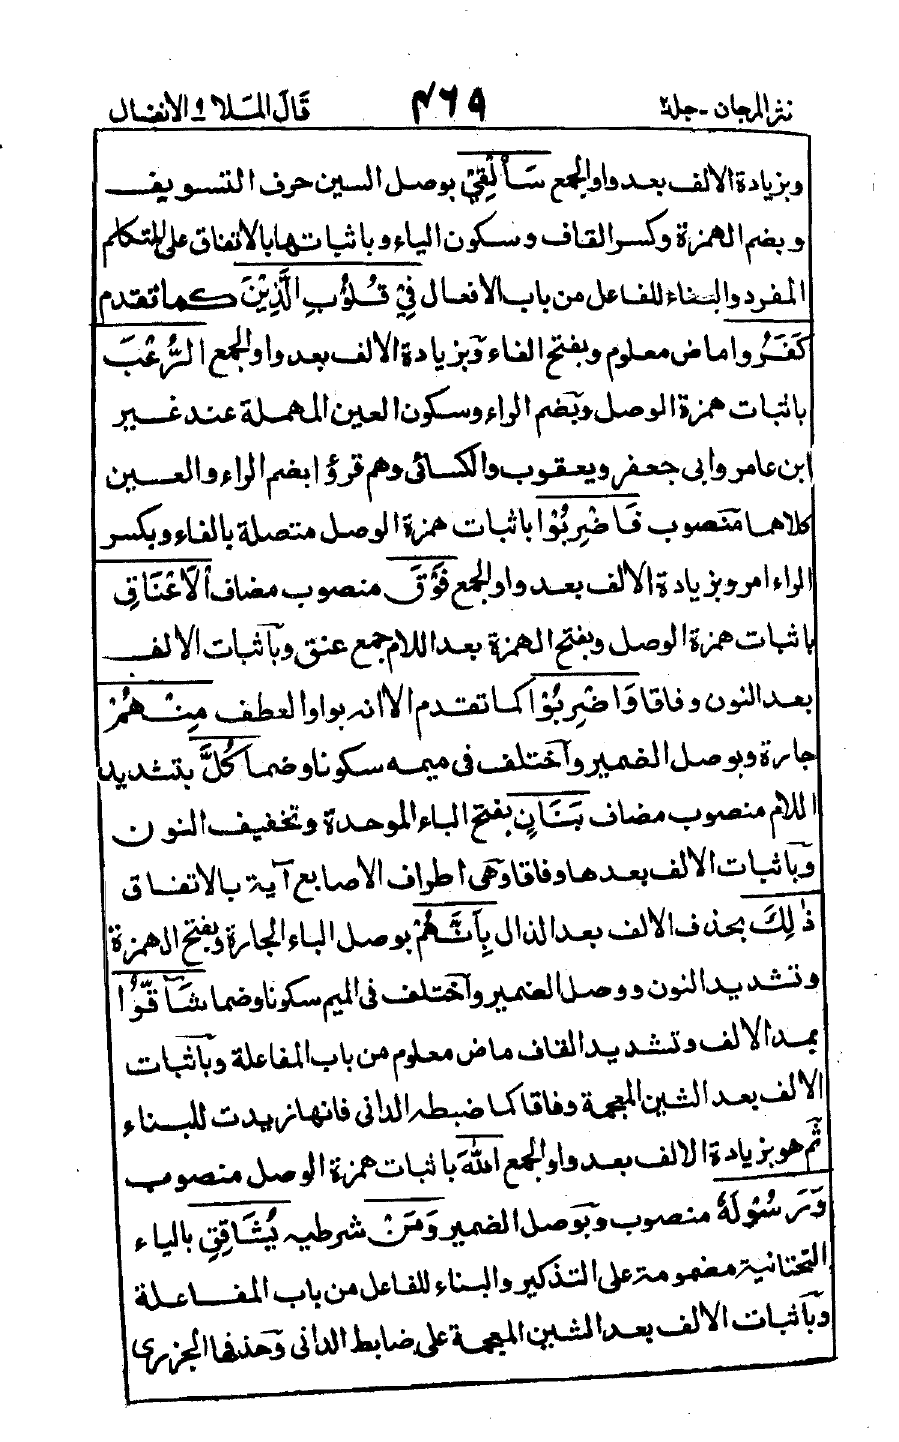 نثر المرجان - جلد٢ ٤٦٩ قَالَ المَلا ٩ الانفال
وبزيادة الالف بعد واو الجمع سَأُلْقِيْ بوصل السين حرف التسويف
وبضم الهمزة وكسر القاف وسكون الياء وباثباتها بالاتفاق على المتكلم
المفرد والبناء للفاعل من باب الافعال فِيْ قُلُوْبِ الَّذِيْنَ كما تقدم
كَفَرُوا ماض معلوم وبفتح الفاء وبزيادة الالف بعد واو الجمع الرُّعْبَ
باثبات همزة الوصل وبضم الراء وسكون العين المهملة عند غير
ابن عامر وابى جعفر ويعقوب والكسائى وهم قرؤا بضم الراء والعين
كلاهما منصوب فَاضْرِبُوْا باثبات همزة الوصل متصلة بالفاء وبكسر
الراء امر وبزيادة الالف بعد واو الجمع فَوْقَ منصوب مضاف الْاَعْنَاقِ
باثبات همزة الوصل وبفتح الهمزة بعد اللام جمع عنق وباثبات الالف
بعد النون وفاقا وَاضْرِبُوْا كما تقدم الا انه بواو العطف مِنْهُمْ
جارة وبوصل الضمير واختلف فى ميمه سكونا وضما كُلَّ بتشديد
اللام منصوب مضاف بَنَانٍ بفتح الباء الموحدة وتخفيف النون
وباثبات الالف بعدها وفاقا وهى اطراف الاصابع آية بالاتفاق
ذٰلِكَ بحذف الالف بعد الذال بِاَنَّهُمْ بوصل الباء الجارة وبفتح الهمزة
وتشديد النون ووصل الضمير واختلف فى الميم سكونا وضما شَآقُّوْا
بمد الالف وتشديد القاف ماض معلوم من باب المفاعلة وباثبات
الالف بعد الشين المعجمة وفاقا كما ضبطه الدانى فانها زيدت للبناء
ثم هو بزيادة الالف بعد واو الجمع اللّٰهَ باثبات همزة الوصل منصوب
وَرَسُوْلَهٗ منصوب وبوصل الضمير وَمَنْ شرطيه يُشَاقِقِ بالياء
التحتانية مضمومة على التذكير والبناء للفاعل من باب المفاعلة
وباثبات الالف بعد الشين المعجمة على ضابط الدانى وحذفها الجزرى